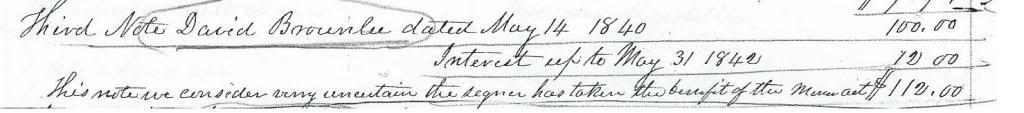 Third Note David Brownlee dated May 14 1840 100.00
Interest up to May 31 1842 12 00
This note we consider very uncertain the segner has taken the benefit of the act $112.00